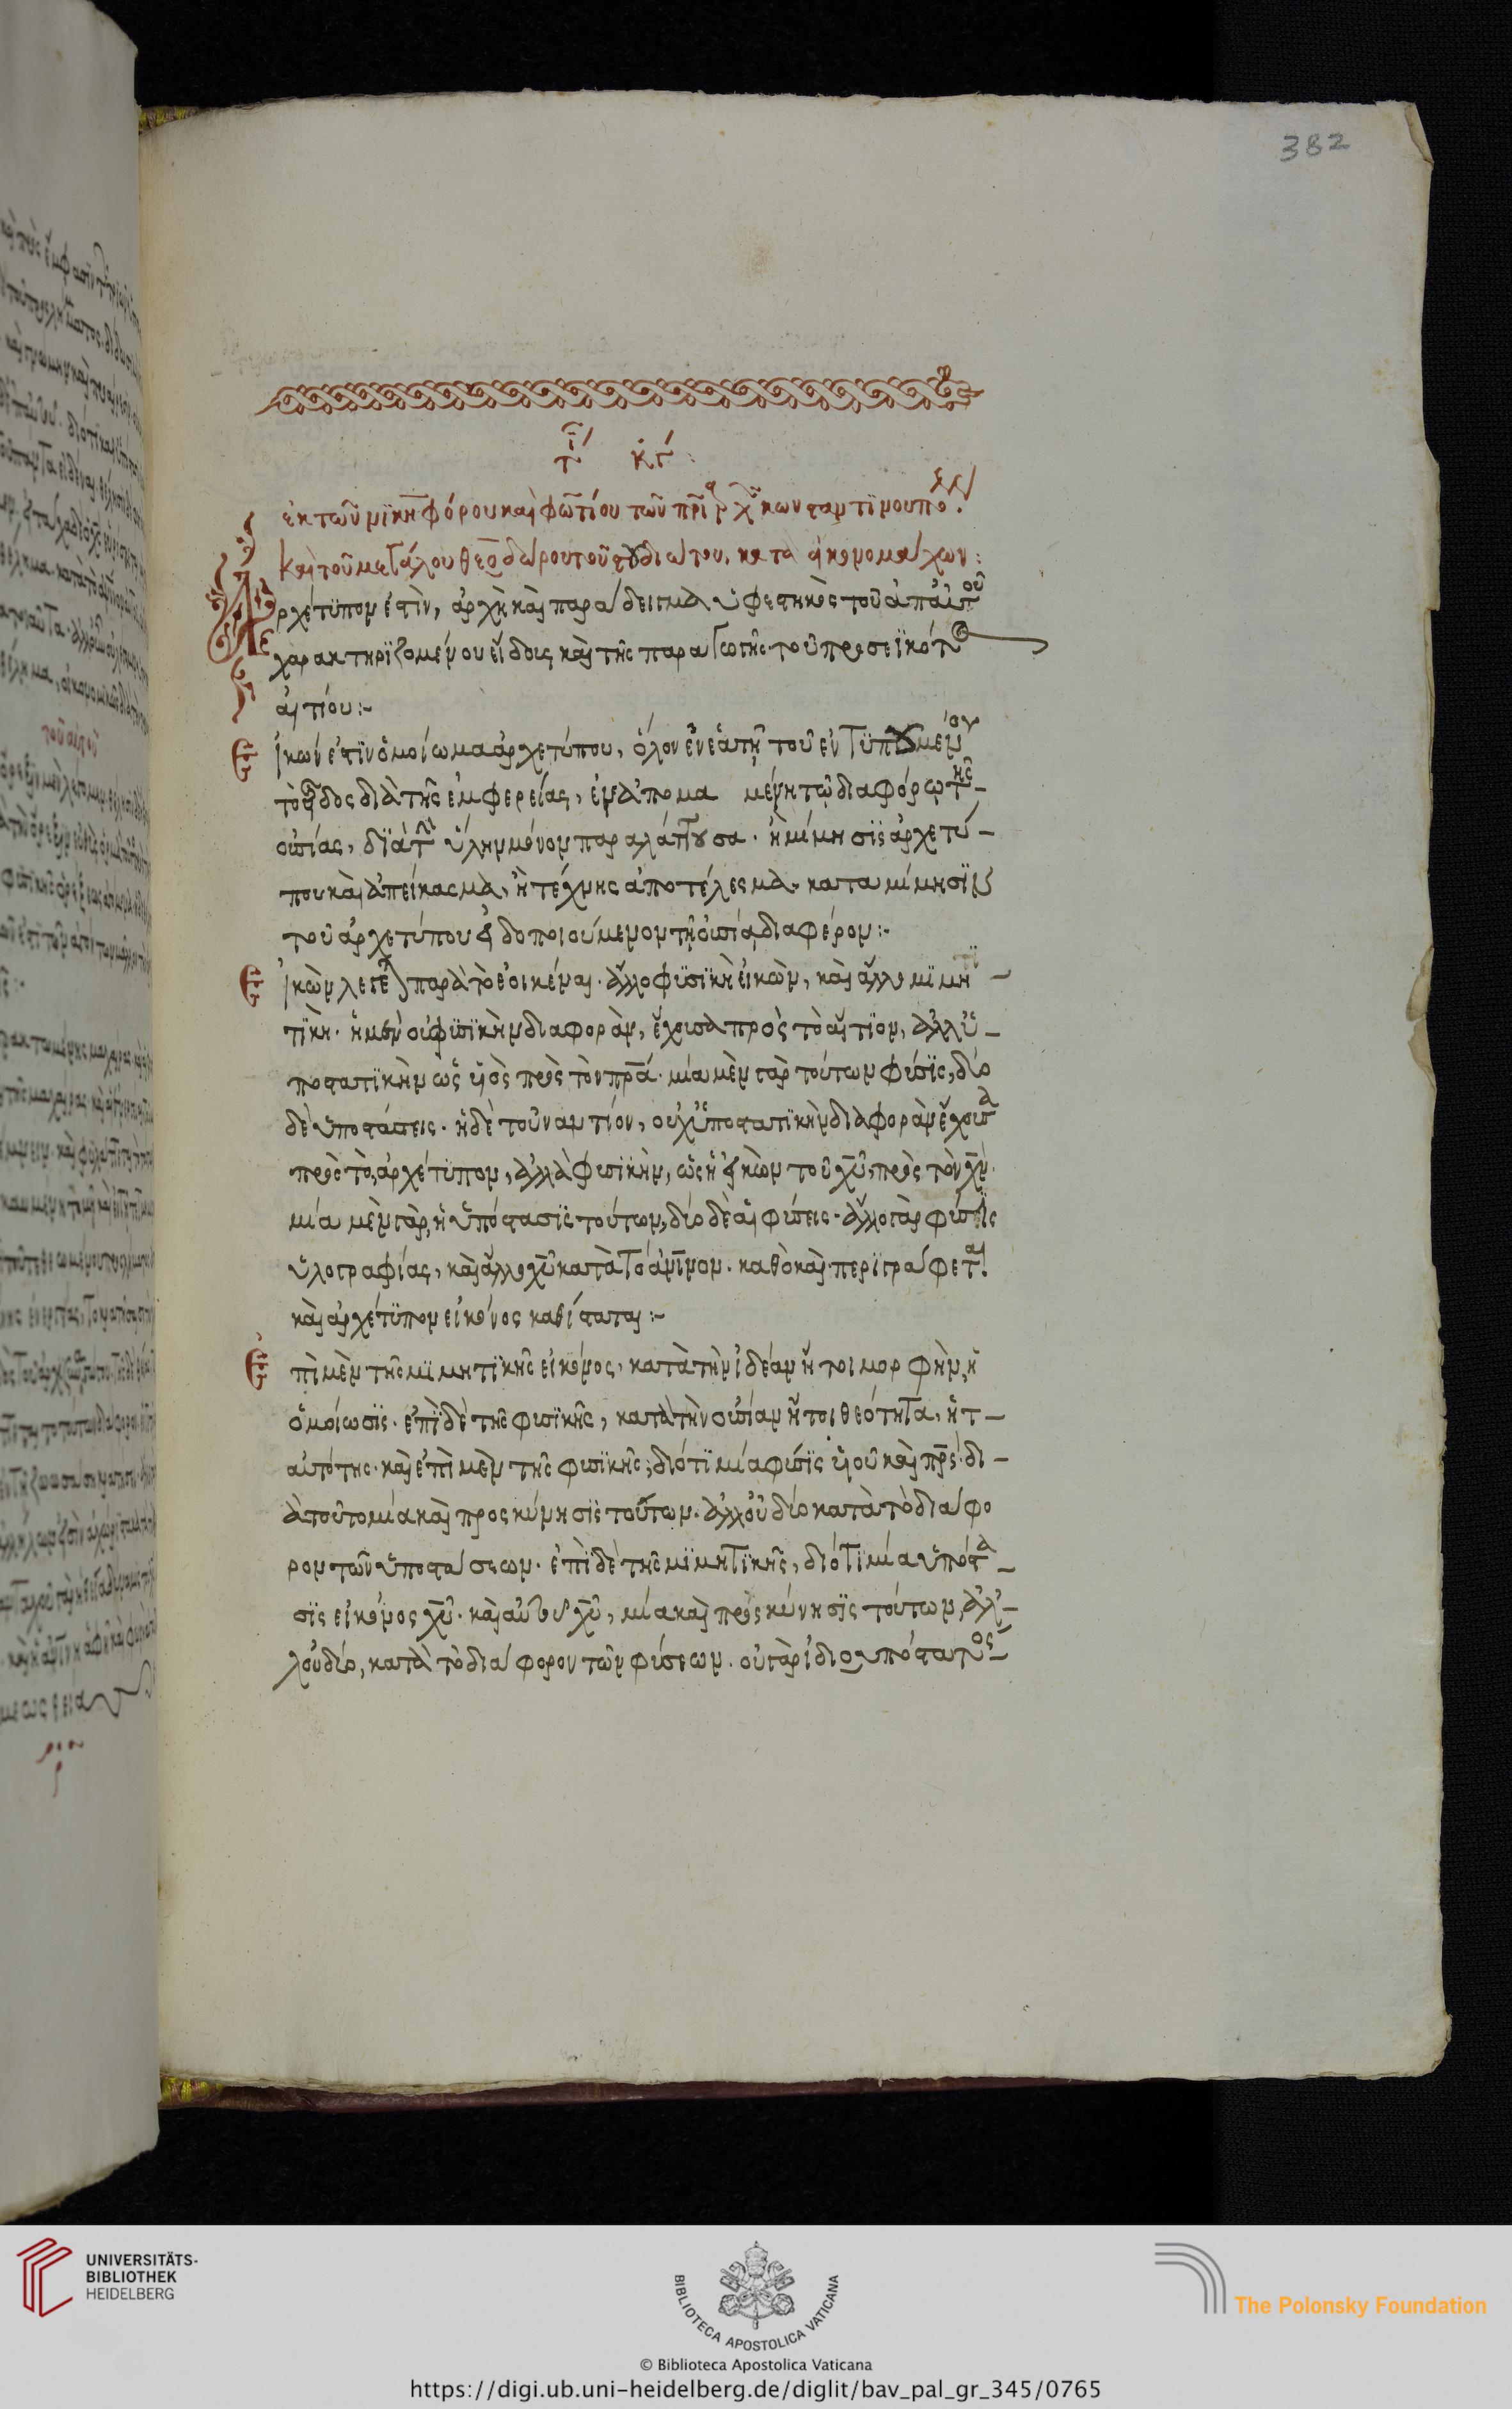 382
τί κγ:
ἐκ τῶν νϊκηφόρου καὶ φωτίου τῶν πρϊαρχῶν κωνσταντϊνουπό.
καὶ τοῦ μεγάλου θεοδώρου τοῦ στουδιώτου, κατὰ εἰκονομάχων:
Ἀρχέτϋπον ἐστὶν, ἀρχὴ καὶ παράδειγμα ὑφεστηκὸς τοῦ ἀπ' αὐτοῦ
χαρακτηρϊζομένου εἴδους καὶ τῆς παραγωγῆς τοῦ προσεϊκότος
αἴτιου:-
Εἰκών ἐστϊν ὁμοίωμα ἀρχετύπου, ὅλον ἐν ἑαυτῆ τοῦ ἐντϋπουμένου
τὸ εἶδος διὰ τῆς ἐμφερείας,
τῆς
οὐσίας, δϊὰ τὴν ὕλην μόνον παραλάττουσα. ἢ μίμησϊς ἀρχετύ-
που καὶ ἀπείκασμα, ἢ τέχνης ἀποτέλεσμα, κατὰ μίμησϊν
τοῦ ἀρχετύπου εἰδοποιούμενον τῆ οὐσία διαφέρον:-
Εἰκὼν λέγεται παρὰ τὸ ἐοικέναι. ἄλλο φϋσϊκὴ εἰκὼν, καὶ ἄλλο μϊμη-
τϊκὴ. ἡ μὲν οὐ φϋσϊκὴν διαφορὰν, ἔχουσα πρὸς τὸ αἴτϊον, ἀλλ' ὑ-
ποστατϊκὴν ὡς ὑιὸς πρὸς τὸν πρα. μία μὲν γὰρ τούτων φύσϊς, δύο
δὲ ὑποστάσεις. ἡ δὲ τοὐναντίον, οὐχ ὑποστατϊκὴν διαφορὰν ἔχουσα
πρὸς τὸ ἀρχέτϋπον, ἀλλὰ φυσϊκὴν, ὡς ἡ εἰκὼν τοῦ χυ, πρὸς τὸν χν.
μία μὲν γὰρ, ἡ ὑπόστασϊς τούτων, δύο δὲ αἱ φύσεις. ἄλλο γὰρ φύσϊς
ὑλογραφίας, καὶ ἄλλο χυ κατὰ τὸ ἀνινον. καθὸ καὶ περϊγράφεται.
καὶ ἀρχέτϋπον εἰκόνος καθίσταται:-
Ἐπὶ μὲν τῆς μϊμητϊκῆς εἰκόνος, κατὰ τὴν ἰδέαν ἤτοι μορφὴν, ἡ
ὁμοίωσϊς. ἐπὶ δὲ τῆς φυσϊκῆς, κατὰ τὴν οὐσίαν ἤτοι θεότητα, ἡ τ-
αυτότης. καὶ ἐπὶ μὲν τῆς φυσϊκῆς, διότϊ μία φύσϊς ὑιοῦ καὶ πρς, δι-
ὰ τοῦτο μία καὶ προσκύνησϊς τούτων. ἀλλ' οὐ δύο κατὰ τὸ διάφο
ρον τῶν ὑποστάσεων. ἐπὶ δὲ τῆς μϊμητϊκῆς, διότϊ μία ὑπόστα-
σϊς εἰκόνος χυ. καὶ αὐτοῦ χυ, μία καὶ προσκύνησϊς τούτων, ἀλ-
λ' οὐ δύο, κατὰ τὸ διάφορον τῶν φύσεων. οὐ γὰρ ἰδιοϋπόστατος
UNIVERSITÄTS-
BIBLIOTHEK
HEIDELBERG
BIBLIOTECA APOSTOLICA VATICANA
The Polonsky Foundation
© Biblioteca Apostolica Vaticana
https://digi.ub.uni-heidelberg.de/diglit/bav_pal_gr_345/0765